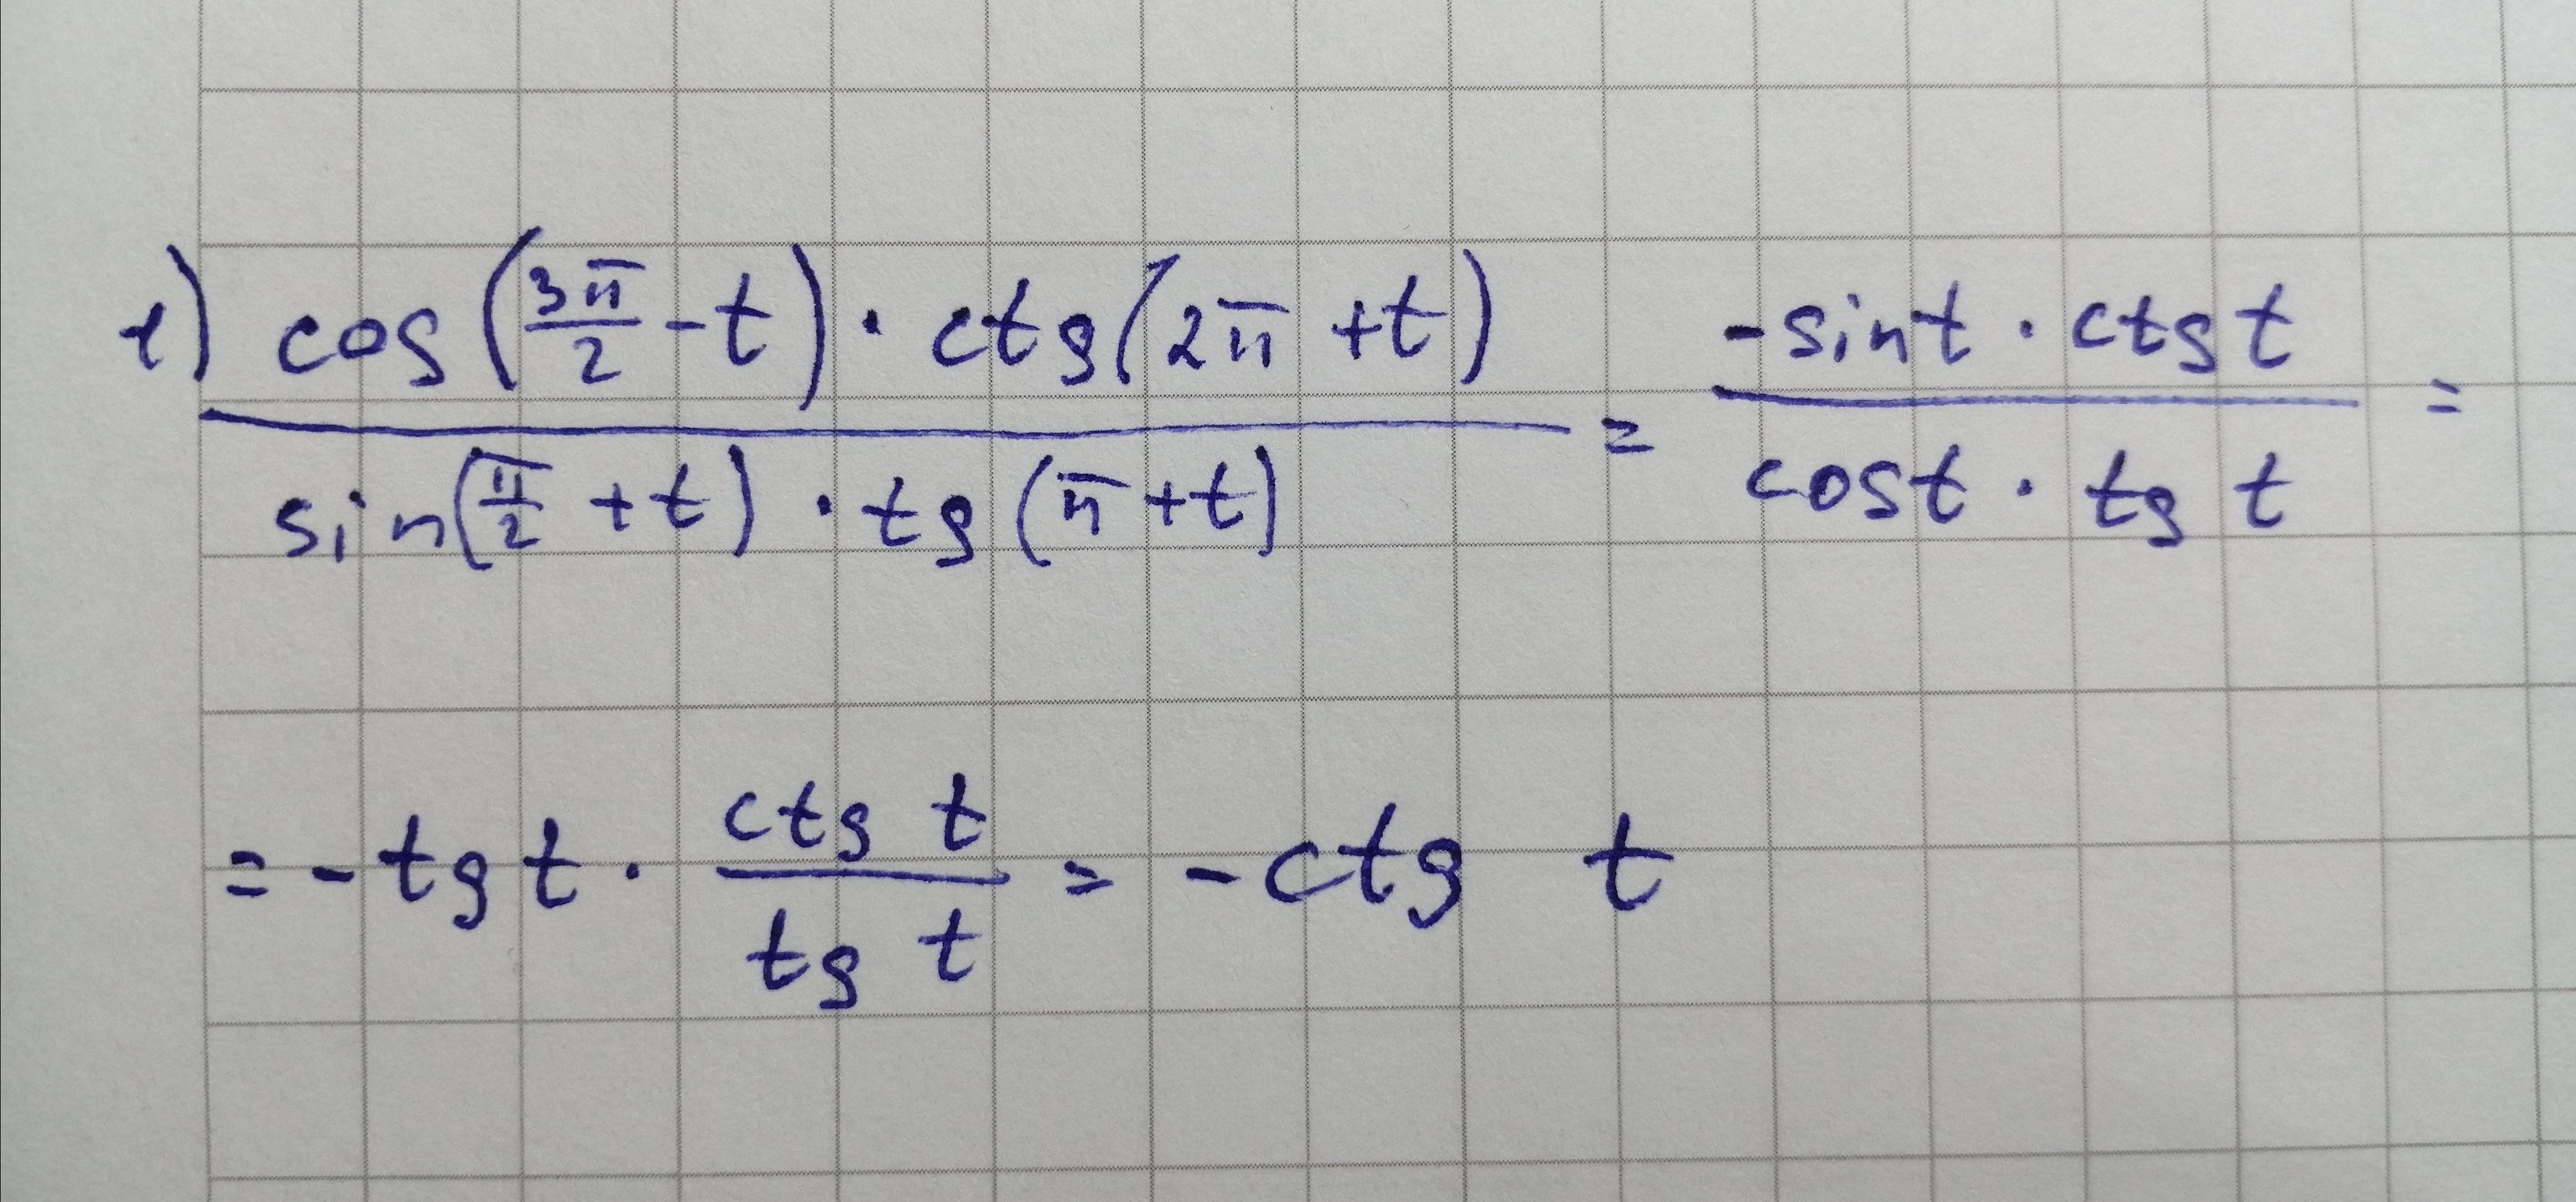 1) cos(3π/2 - t) · ctg(2π + t) / sin(π/2 + t) · tg(π + t) = -sin t · ctg t / cos t · tg t =
= - tg t · ctg t / tg t = - ctg t